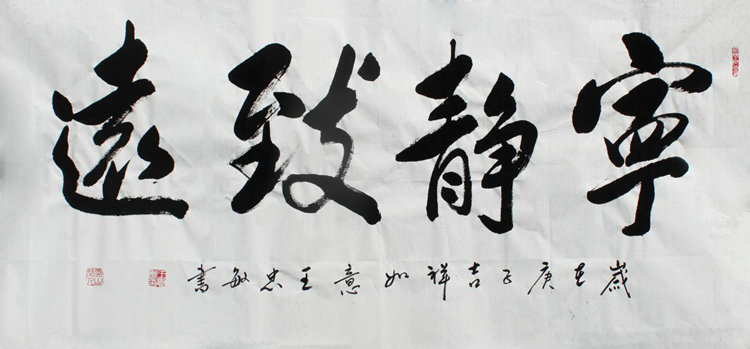 寧静致遠
歲在庚子吉祥如意王忠敏書